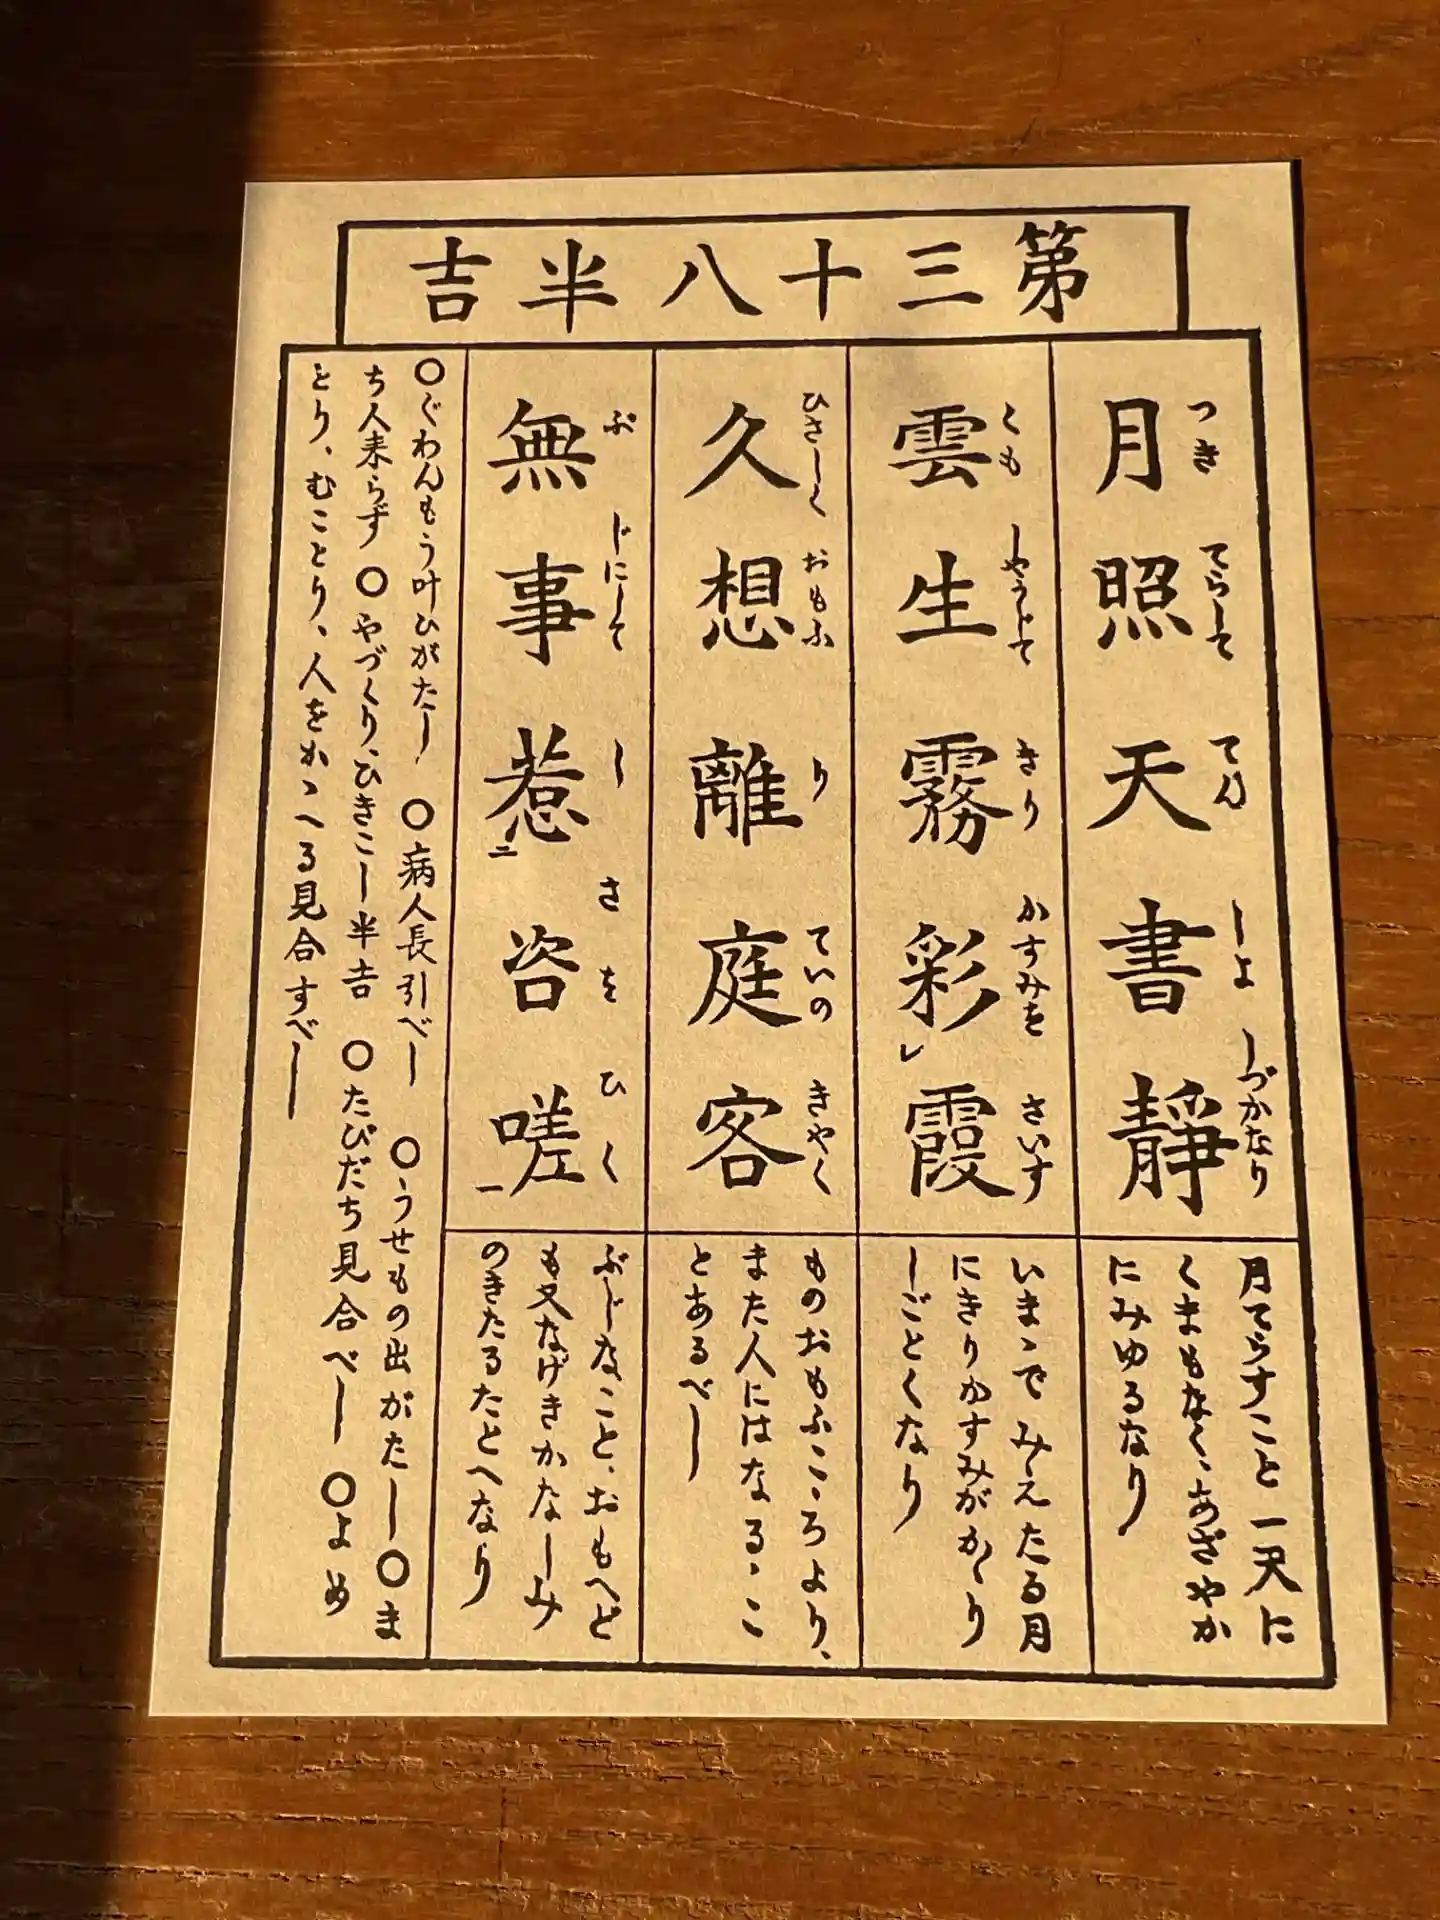 第三十八半吉
月照天書靜
つき てらして てん しよ しづかなり
月てらすこと一天に
くまもなく、あざやか
にみゆるなり
雲生霧彩レ霞
くも しやうじて きり かすみを さいす
いまゝでみえたる月
にきりかすみがかゝり
しごとくなり
久想離庭客
ひさしく おもふ り ていの きやく
ものおもふこゝろより、
また人にはなるゝこ
とあるべし
無事惹二咨嗟一
ぶ じにして し さを ひく
ぶじなこと、おもへど
も又なげきかなしみ
のきたるたとへなり
〇ぐわんもう叶ひがたし 〇病人長引べし 〇うせもの出がたし〇ま
ち人来らず 〇やづくり、ひきこし半吉 〇たびだち見合べし 〇よめ
とり、むことり、人をかゝへる見合すべし